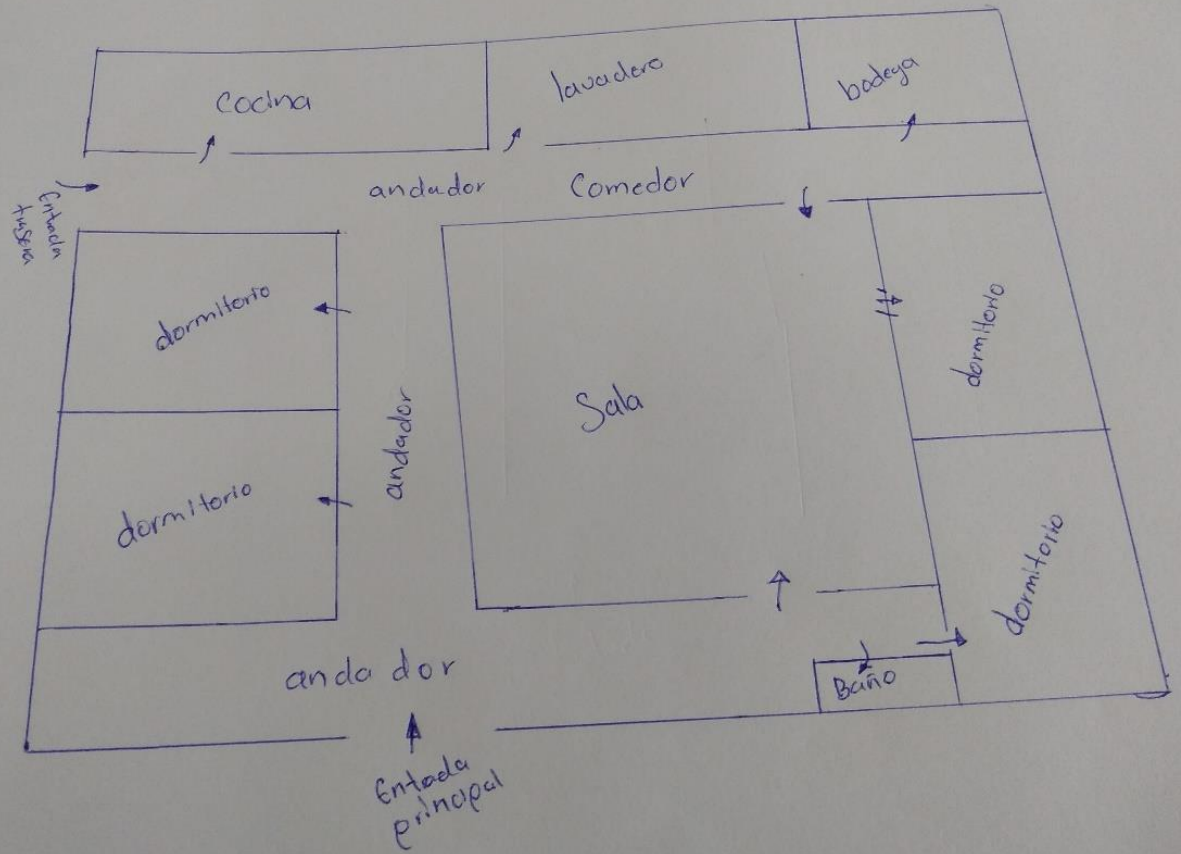 cocina
lavadero
bodega
Entada
trasera
andador
Comedor
dormitorio
dormitorio
andador
Sala
dormitorio
dormitorio
andador
Baño
Entada
principal